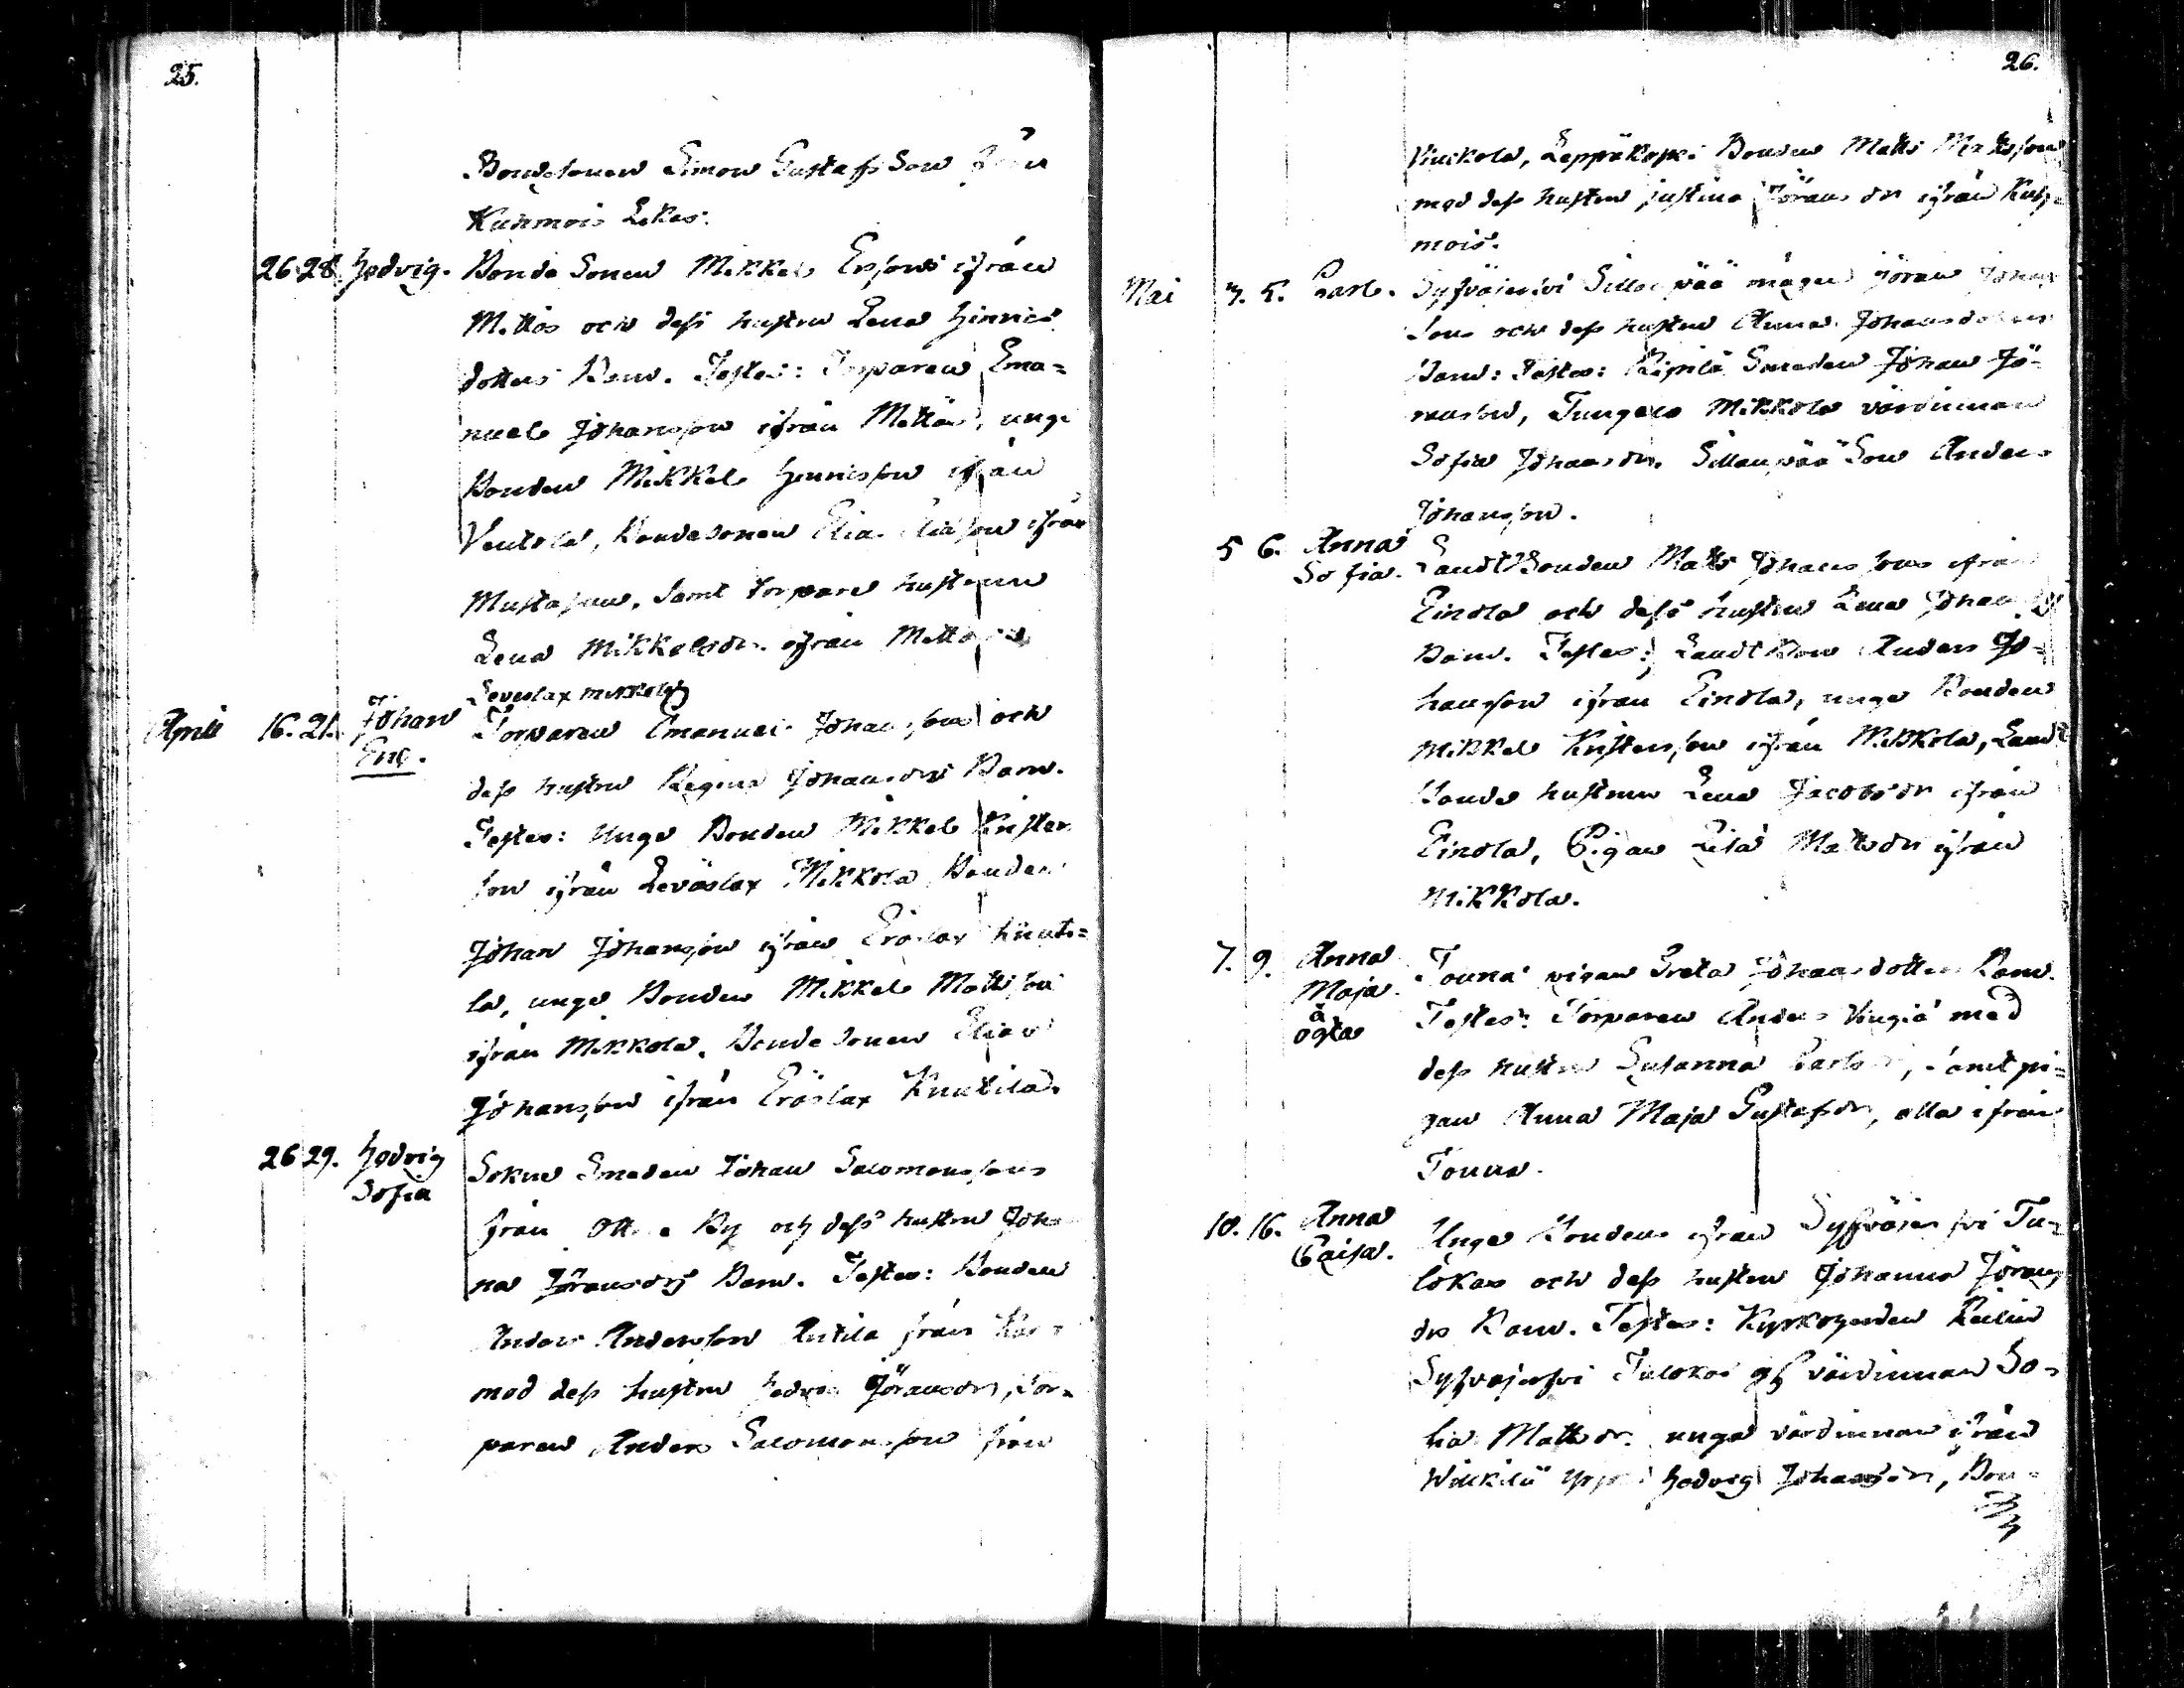 25.
Bondesonen Simon Gustafsson från
Kuhmois Lekas.
26 28. Hedvig. Bonde Sonen Mikkel Ersons ifrån
Mattas och dess hustru Lena Hinrics
dotters Barn. Testes: Torparen Ema=
nuel Johansson ifrån Mattas, unge
Bonden Mikkel Henricsson ifrån
Ventola, Bondesonen Elia Eliasson ifrån
Mustajum, samt torpare hustrun
Lena Mikkelsdr. ifrån
Leveslax Mikkola
April 16. 21. Johan Torparen Emanuel Johanssons och
Eric. dess hustru Regina Johansdrs Barn.
Testes: Unge Bonden Mikkel Kristers
son ifrån Leväslax Mikkola, Bonden
Johan Johansson ifrån Eräslax Knuti=
la, unge Bonden Mikkel Mattsson
ifrån Mikkola. Bonde Sonen Elias
Johansson ifrån Eräslax Knutila.
26 29. Hedvig Sokne Smeden Johan Salomonssons
Sofia från By och dess hustru Joha
na Jöransdrs Barn. Testes: Bonden
Anders Andersson Antila från
med dess hustru Hedvig Jöransdr, Tor=
paren Anders Salomonsson från
26.
Leppäkoski Bonden Matts Mattsson
med dess hustru Justina Jörans dr ifrån Kuh=
mois.
Mai 3. 5. Carl. Sysväjerfvi Sillanpää mågen Jöran Johans
sons och dess hustru Anna Johansdotters
Barn: Testes: Smeden Johan Jö=
ransson, Mikkola värdinnan
Sofia Johansdr. Sillanpää Son Anders
Johansson.
5 6. Anna Landt Bonden Matts Johanssons ifrån
Sofia. Einola och dess hustru Lena Johansdrs
Barn. Testes: Landt Bon Anders Jo=
hansson ifrån Einola, unge Bonden
Mikkel Kristersson ifrån Mikkola, Landt
Bonde hustrun Lena Jacobsdr ifrån
Einola, Pigan Lisa Mattsdr ifrån
Mikkola.
7. 9. Anna Touna pigan Greta Johansdotters Barn.
Maja. Testes: Torparen Anders med
oä
ögta dess hustru Susanna Carlsdr, samt pi=
gan Anna Maja Gustafsdr, alla ifrån
Touna.
10. 16. Anna Unge Bondens ifrån Sysväjerfvi Tu=
Caisa. lokas och dess hustru Johanna Jörans
drs Barn. Testes: Kyrkovärden
Sysväjerfvi Tulokas och värdinnan So=
fia Mattsdr. unga värdinnan ifrån
Hedvig Johansdr, Bon=